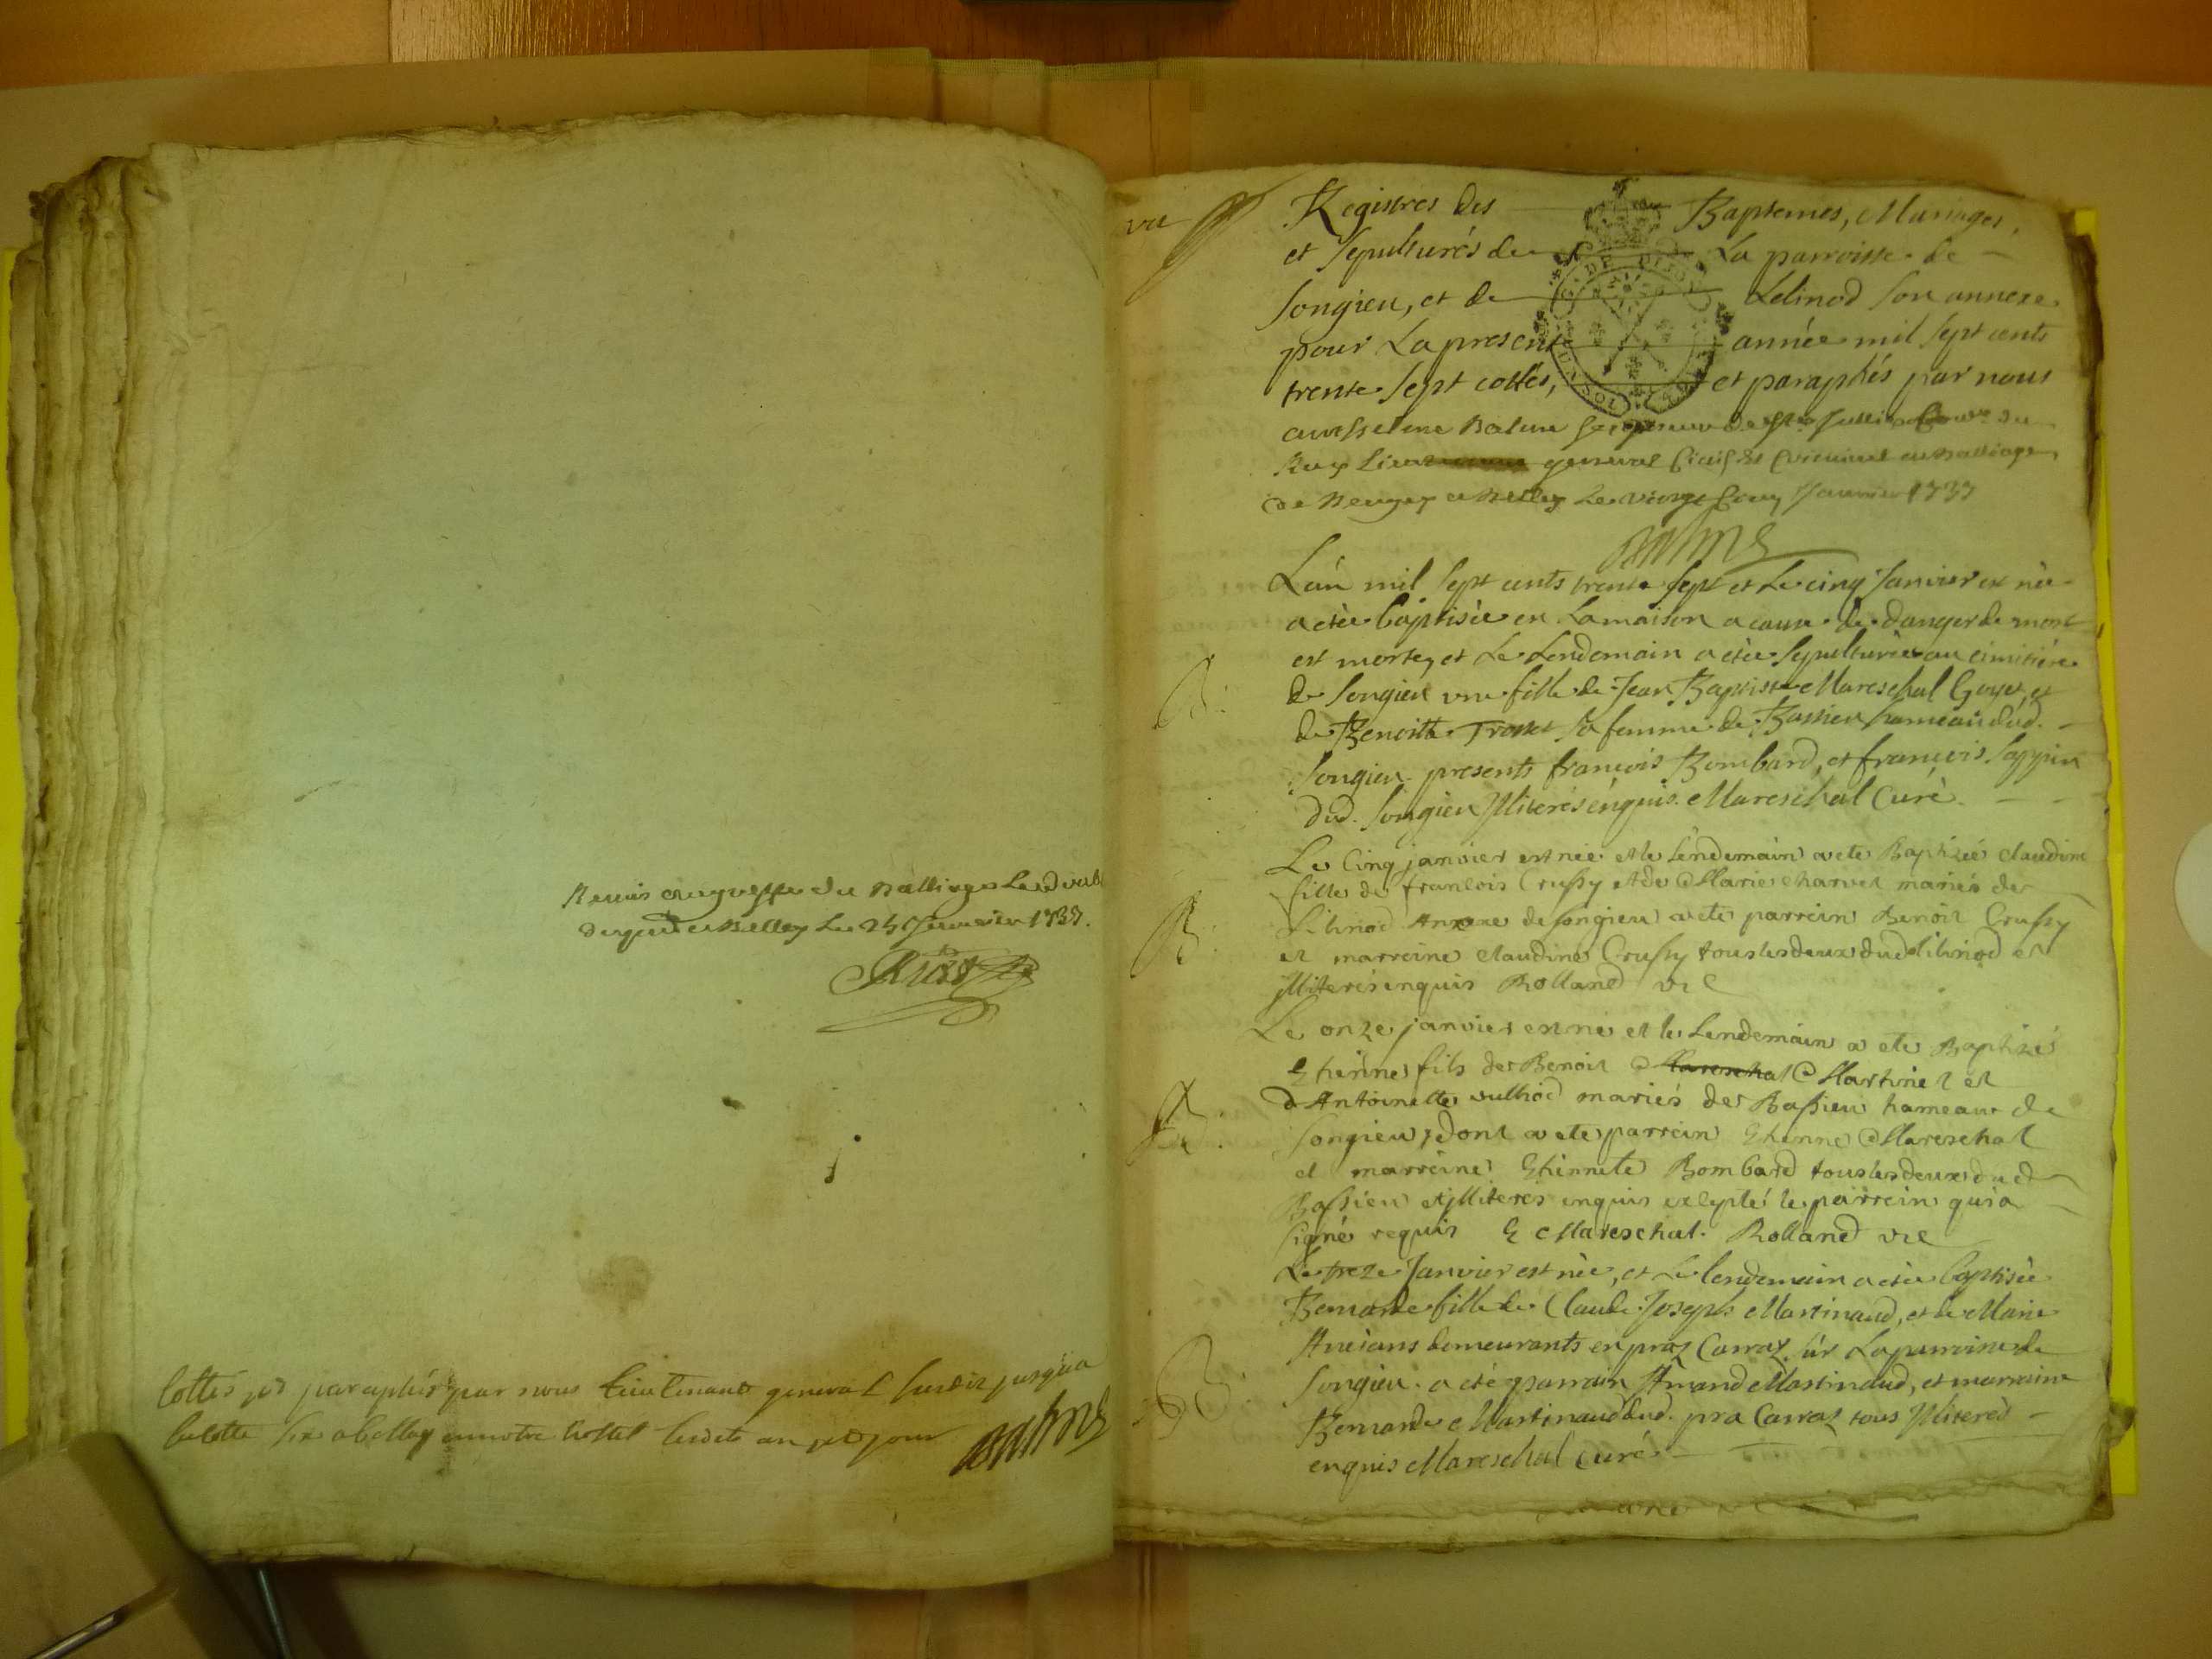 Remis au greffe du Balliage
a Belley le 24 Janvier 1737.
1
Cottés et paraphés par nous lieutenant general susdit jusqua
la cotte six a belley en notre hostel lesdits an et jour
Balme
vu
Registres des Baptemes, Mariages,
et Sepulturés de La parroisse de
Songieu, et de Lilinod son annexe
pour La presente année mil sept cents
trente sept cottés, et paraphés par nous
anthelme Balme Seigneur de Ste Jullie Conr. du
Roy Lieutenant general Civil et Criminel au Balliage
de Beugey a Belley Le vingt Cinq Janvier 1737
Balme
L'an mil sept cents trente sept et Le cinq Janvier est née
a etée baptisée en La maison a cause de danger de mort
est morte, et Le Lendemain a etée sepulturée au cimitiére
B.
de Songieu une fille de Jean Baptiste Mareschal Goyet, et
de Benoitte Trosset sa femme de Bassieu hameau dud.
Songieu. presents francois Bombard, et francois Sappin
dud. Songieu Jlliterés enquis. Mareschal Curé.
Le Cinq janvier est née et le Lendemain a ete Baptizée claudine
fille de francois Crussy et de Marie charvet mariés de
B.
Lilinod Annexe de songieu a ete parrein Benoit Crussy
et marreine claudine Crussy tous les deux dud Lilinod et
jlliterés enquis Rolland vic
Le onze janvier est né et le Lendemain a ete Baptizé
Ethienne fils de Benoit Mareschal Martinet et
B.
d'Antoinette vulliod mariés de Bassieu hameau de
songieu, dont a ete parrein Ethienne Mareschal
et marreine Ethiennete Bombard tous les deux dud
Bassieu et jlliteres enquis exepté le parrein qui a
signé requis E Mareschal. Rolland vic
Le treze Janvier est née, et Le lendemain a etée baptisée
Bernarde fille de Claude Joseph Martinaud, et de Marie
Ancians demeurants en praz Carraz sur La parroisse de
B.
Songieu. a eté parrain Amand Martinaud, et marraine
Bernarde Martinaud dud. pra Carraz tous Jlliterés
enquis Mareschal Curé